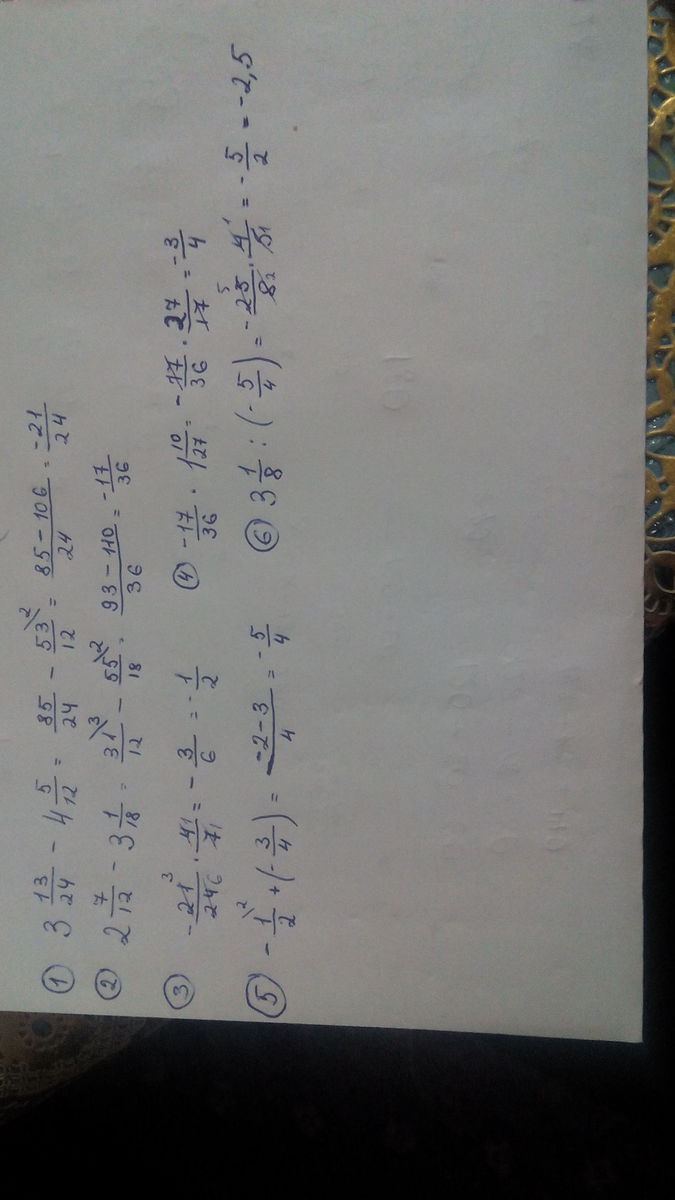 ① 3 13/24 - 4 5/12 = 85/24 - 53\2/12 = 85-106/24 = -21/24
② 2 7/12 - 3 1/18 = 31\3/12 - 55\2/18 = 93-110/36 = -17/36
③ -21 3/24 6 · 4 1/7 1 = -3/6 = -1/2 ④ -17/36 · 1 10/27 = -17/36 · 27/17 = -3/4
⑤ -1\2/2 + (-3/4) = -2-3/4 = -5/4 ⑥ 3 1/8 : (-5/4) = -25 5/8 2 · 4 1/5 1 = -5/2 = -2,5